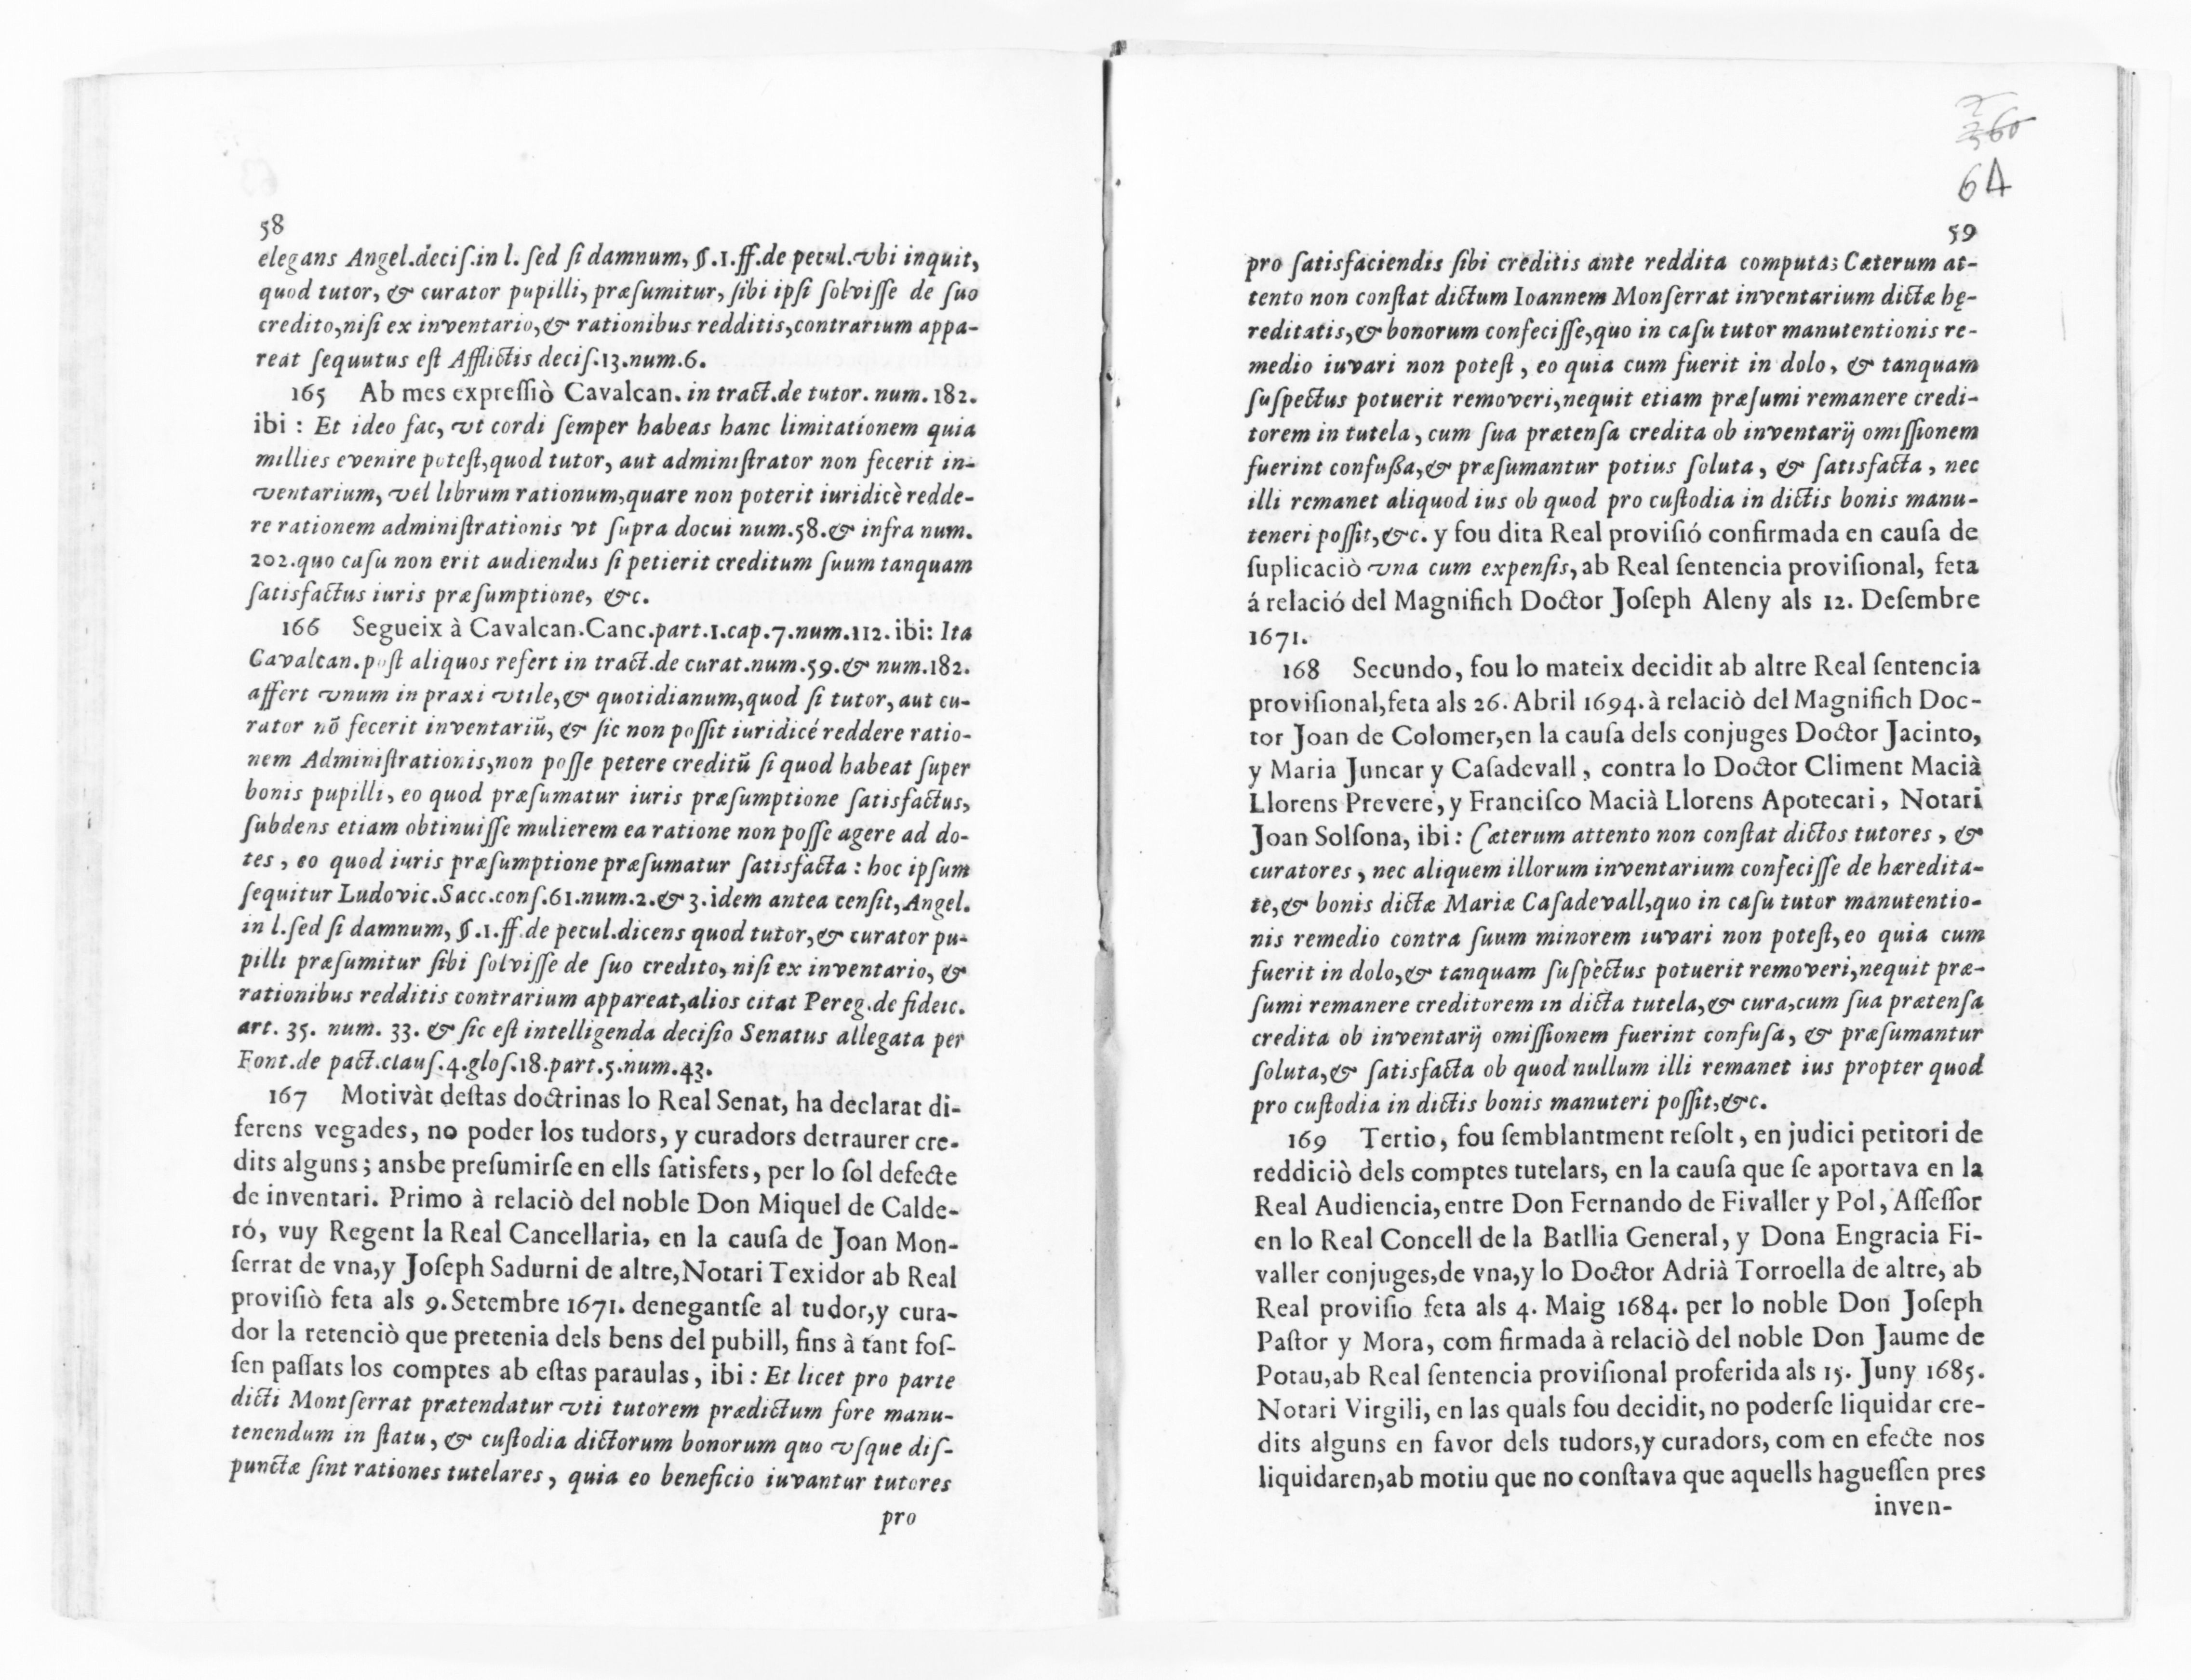 58
elegans Angel.decis.in l. sed si damnum, §.1.ff.de pecul.vbi inquit,
quod tutor, & curator pupilli, præsumitur, sibi ipsi solvisse de suo
credito,nisi ex inventario,& rationibus redditis,contrarium appa-
reat sequutus est Afflictis decis.13.num.6.
165 Ab mes expressiò Cavalcan. in tract.de tutor. num. 182.
ibi : Et ideo fac, vt cordi semper habeas hanc limitationem quia
millies evenire potest,quod tutor, aut administrator non fecerit in-
ventarium, vel librum rationum,quare non poterit iuridicè redde-
re rationem administrationis vt supra docui num.58.& infra num.
202.quo casu non erit audiendus si petierit creditum suum tanquam
satisfactus iuris præsumptione, &c.
166 Segueix à Cavalcan.Canc.part.1.cap.7.num.112. ibi: Ita
Cavalcan.post aliquos refert in tract.de curat.num.59.& num.182.
affert vnum in praxi vtile,& quotidianum,quod si tutor, aut cu-
rator nõ fecerit inventariũ, & sic non possit iuridicé reddere ratio-
nem Administrationis,non posse petere creditũ si quod habeat super
bonis pupilli, eo quod præsumatur iuris præsumptione satisfactus,
subdens etiam obtinuisse mulierem ea ratione non posse agere ad do-
tes , eo quod iuris præsumptione præsumatur satisfacta : hoc ipsum
sequitur Ludovic.Sacc.cons.61.num.2.& 3.idem antea censit, Angel.
in l.sed si damnum, §.1.ff.de pecul.dicens quod tutor,& curator pu-
pilli præsumitur sibi solvisse de suo credito, nisi ex inventario, &
rationibus redditis contrarium appareat,alios citat Pereg.de fideic.
art. 35. num. 33. & sic est intelligenda decisio Senatus allegata per
Font.de pact.claus.4.glos.18.part.5.num.43.
167 Motivàt destas doctrinas lo Real Senat, ha declarat di-
ferens vegades, no poder los tudors, y curadors detraurer cre-
dits alguns ; ansbe presumirse en ells satisfets, per lo sol defecte
de inventari. Primo à relaciò del noble Don Miquel de Calde-
ró, vuy Regent la Real Cancellaria, en la causa de Joan Mon-
serrat de vna,y Joseph Sadurni de altre,Notari Texidor ab Real
provisiò feta als 9.Setembre 1671. denegantse al tudor,y cura-
dor la retenciò que pretenia dels bens del pubill, fins à tant fos-
sen passats los comptes ab estas paraulas, ibi : Et licet pro parte
dicti Montserrat prætendatur vti tutorem prædictum fore manu-
tenendum in statu, & custodia dictorum bonorum quo vsque dis-
punctæ sint rationes tutelares , quia eo beneficio iuvantur tutores
pro
360
64
59
pro satisfaciendis sibi creditis ante reddita computa; Cæterum at-
tento non constat dictum Ioannem Monserrat inventarium dictæ hę-
reditatis,& bonorum confecisse,quo in casu tutor manutentionis re-
medio iuvari non potest , eo quia cum fuerit in dolo, & tanquam
suspectus potuerit removeri,nequit etiam præsumi remanere credi-
torem in tutela, cum sua prætensa credita ob inventarij omissionem
fuerint confußa,& præsumantur potius soluta , & satisfacta , nec
illi remanet aliquod ius ob quod pro custodia in dictis bonis manu-
teneri possit,&c. y fou dita Real provisió confirmada en causa de
suplicaciò vna cum expensis, ab Real sentencia provisional, feta
á relació del Magnifich Doctor Joseph Aleny als 12. Desembre
1671.
168 Secundo, fou lo mateix decidit ab altre Real sentencia
provisional,feta als 26. Abril 1694. à relaciò del Magnifich Doc-
tor Joan de Colomer,en la causa dels conjuges Doctor Jacinto,
y Maria Juncar y Casadevall , contra lo Doctor Climent Macià
Llorens Prevere, y Francisco Macià Llorens Apotecari, Notari
Joan Solsona, ibi : Cæterum attento non constat dictos tutores , &
curatores , nec aliquem illorum inventarium confecisse de hæredita-
te,& bonis dictæ Mariæ Casadevall,quo in casu tutor manutentio-
nis remedio contra suum minorem iuvari non potest,eo quia cum
fuerit in dolo,& tanquam suspectus potuerit removeri,nequit præ-
sumi remanere creditorem in dicta tutela,& cura,cum sua prætensa
credita ob inventarij omissionem fuerint confusa, & præsumantur
soluta,& satisfacta ob quod nullum illi remanet ius propter quod
pro custodia in dictis bonis manuteri possit,&c.
169 Tertio, fou semblantment resolt , en judici petitori de
reddiciò dels comptes tutelars, en la causa que se aportava en la
Real Audiencia, entre Don Fernando de Fivaller y Pol , Assessor
en lo Real Concell de la Batllia General, y Dona Engracia Fi-
valler conjuges,de vna,y lo Doctor Adrià Torroella de altre, ab
Real provisio feta als 4. Maig 1684. per lo noble Don Joseph
Pastor y Mora, com firmada à relaciò del noble Don Jaume de
Potau,ab Real sentencia provisional proferida als 15. Juny 1685.
Notari Virgili, en las quals fou decidit, no poderse liquidar cre-
dits alguns en favor dels tudors,y curadors, com en efecte nos
liquidaren,ab motiu que no constava que aquells haguessen pres
inven-